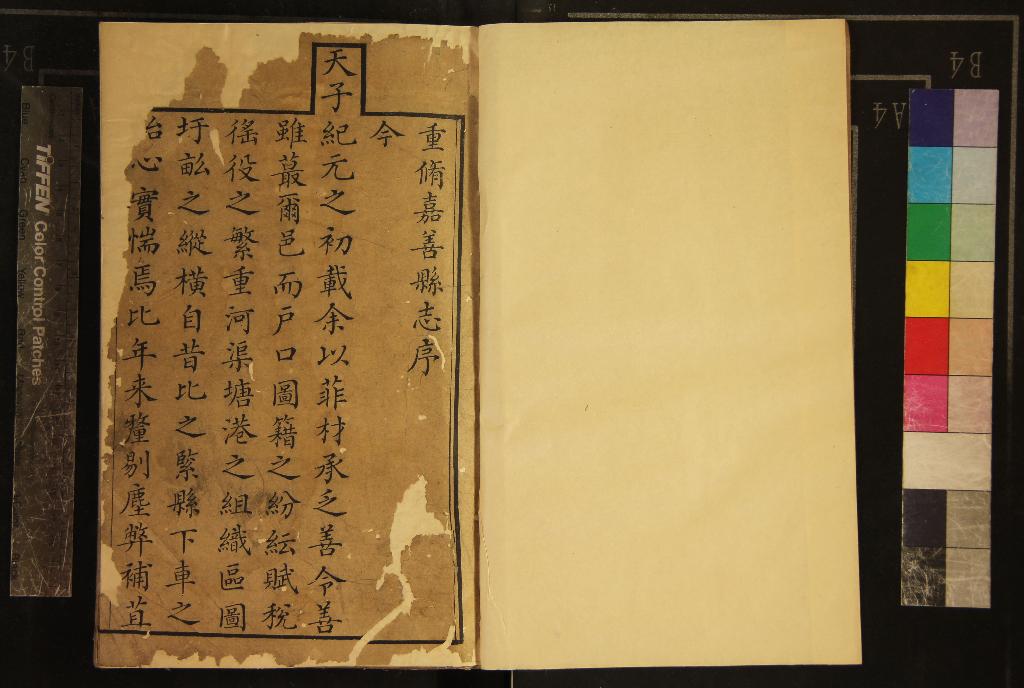 重脩嘉善縣志序
今
天子紀元之初載余以菲材承乏善令善
雖蕞爾邑而戸口圖籍之紛紜賦稅
徭役之繁重河渠塘港之組織區圖
圩畝之縱橫自昔比之緊縣下車之
始心實惴焉比年来釐剔塵弊補苴
TIFFEN Color Control Patches
B4
A4
B4